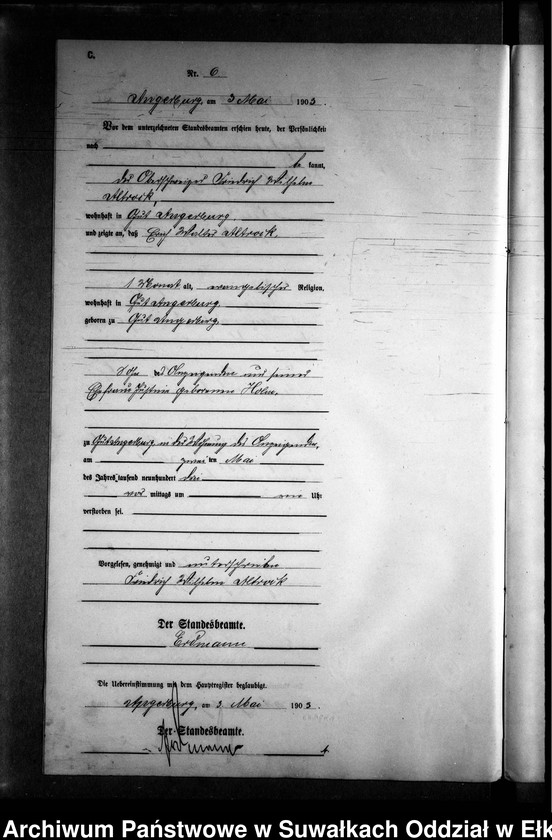 C.
Nr. 6
Angerburg, am 3 Mai 1903.
Vor dem unterzeichneten Standesbeamten erschien heute, der Persönlichkeit
nach
be kannt,
der Friedrich Wilhelm
Altrock,
wohnhaft in Gut Angerburg
und zeigte an, daß Walter Altrock,
1 Monat alt, evangelischer Religion,
wohnhaft in Gut Angerburg
geboren zu Gut Angerburg,
Sohn des Anzeigenden und seiner
Ehefrau Justine geborenen
zu Gut Angerburg in der Wohnung des Anzeigenden,
am zwei ten Mai
des Jahres tausend neunhundert drei
vor mittags um ein Uhr
verstorben sei.
Vorgelesen, genehmigt und unterschrieben
Friedrich Wilhelm Altrock
Der Standesbeamte.
Erdmann
Die Uebereinstimmung mit dem Hauptregister beglaubigt.
Angerburg, am 3. Mai 1903.
Der Standesbeamte.
Erdmann
Archiwum Państwowe w Suwałkach Oddział w Ełk